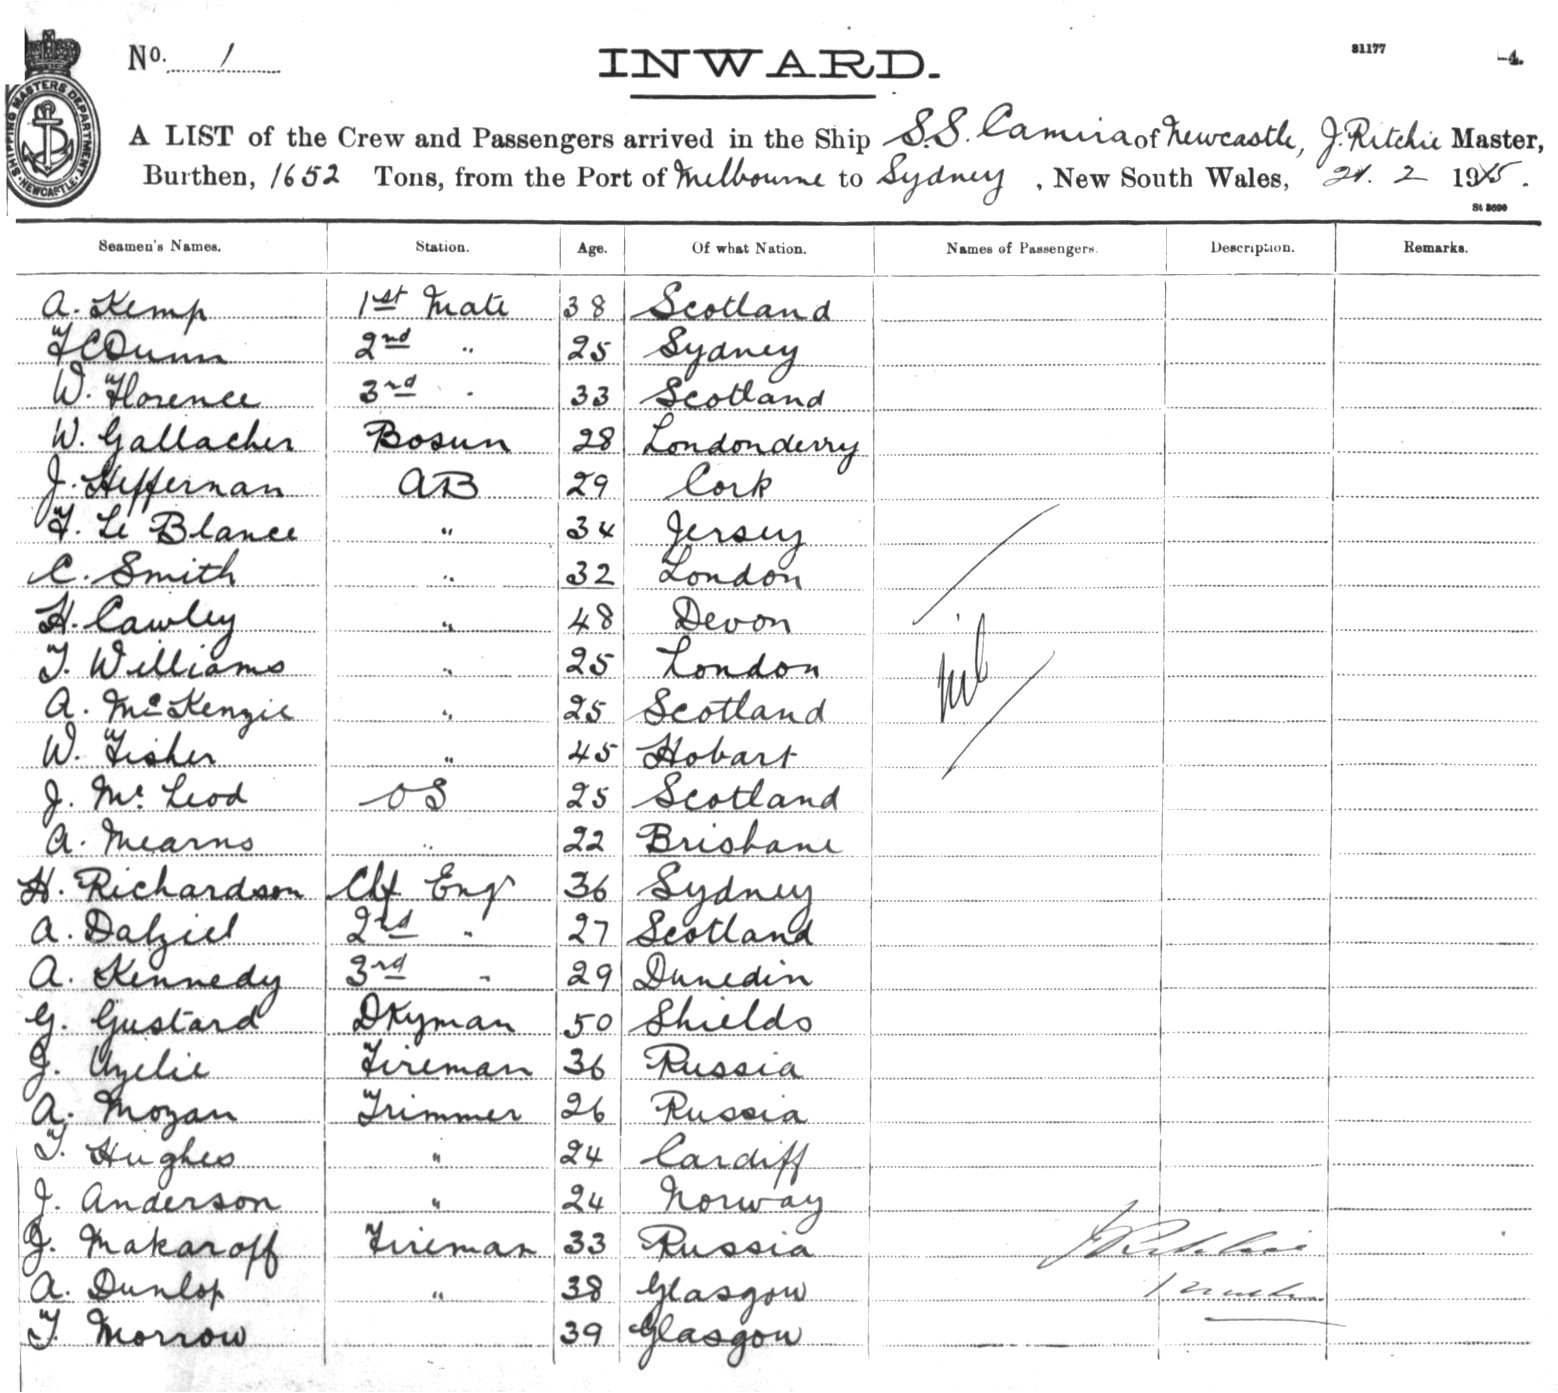 No. 1 INWARD. 81177 -4.
SHIPPING MASTERS DEPARTMENT NEWCASTLE
A LIST of the Crew and Passengers arrived in the Ship S.S. Camira of Newcastle, J. Ritchie Master,
Burthen, 1652 Tons, from the Port of Melbourne to Sydney, New South Wales, 21. 2 1915.
St 3690
Seamen's Names. Station. Age. Of what Nation. Names of Passengers. Description. Remarks.
A. Kemp 1st Mate 38 Scotland
F C Dunn 2nd " 25 Sydney
W. Florence 3rd " 33 Scotland
W. Gallacher Bosun 28 Londonderry
J. Heffernan AB 29 Cork
F. Le Blance " 34 Jersey
C. Smith " 32 London
H. Cawley " 48 Devon
nil
T. Williams " 25 London
A. McKenzie " 25 Scotland
W. Fisher " 45 Hobart
J. McLeod OS 25 Scotland
A. Mearns " 22 Brisbane
H. Richardson Chf Engr 36 Sydney
A. Dalziel 2nd " 27 Scotland
A. Kennedy 3rd " 29 Dunedin
G. Gustard Dkyman 50 Shields
J. Uzelie Fireman 36 Russia
A. Mozan Trimmer 26 Russia
T. Hughes " 24 Cardiff
J. Anderson " 24 Norway
J. Makaroff Fireman 33 Russia J Ritchie
A. Dunlop " 38 Glasgow
T. Morrow 39 Glasgow